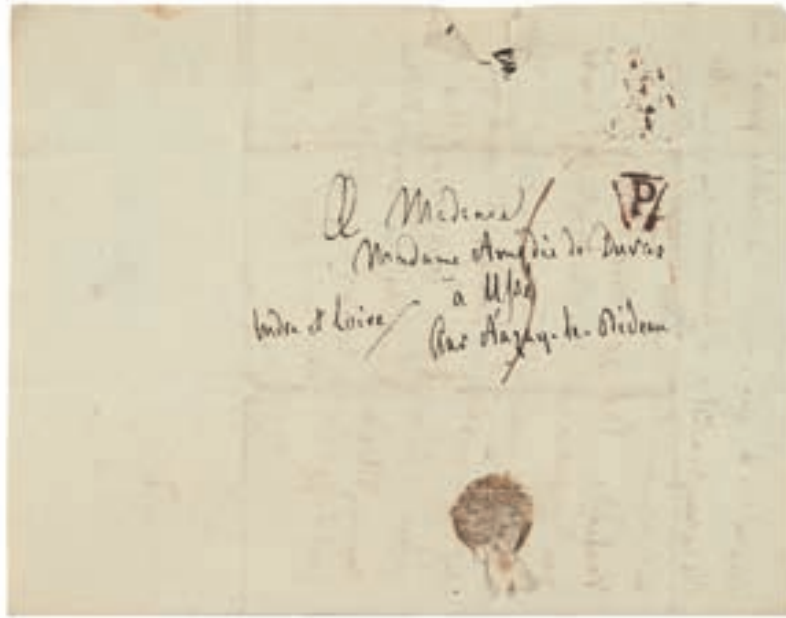 P
A Madame
Madame Amédée de Duras
à Ussé
Indre et Loire
Par Azay-le-Rideau